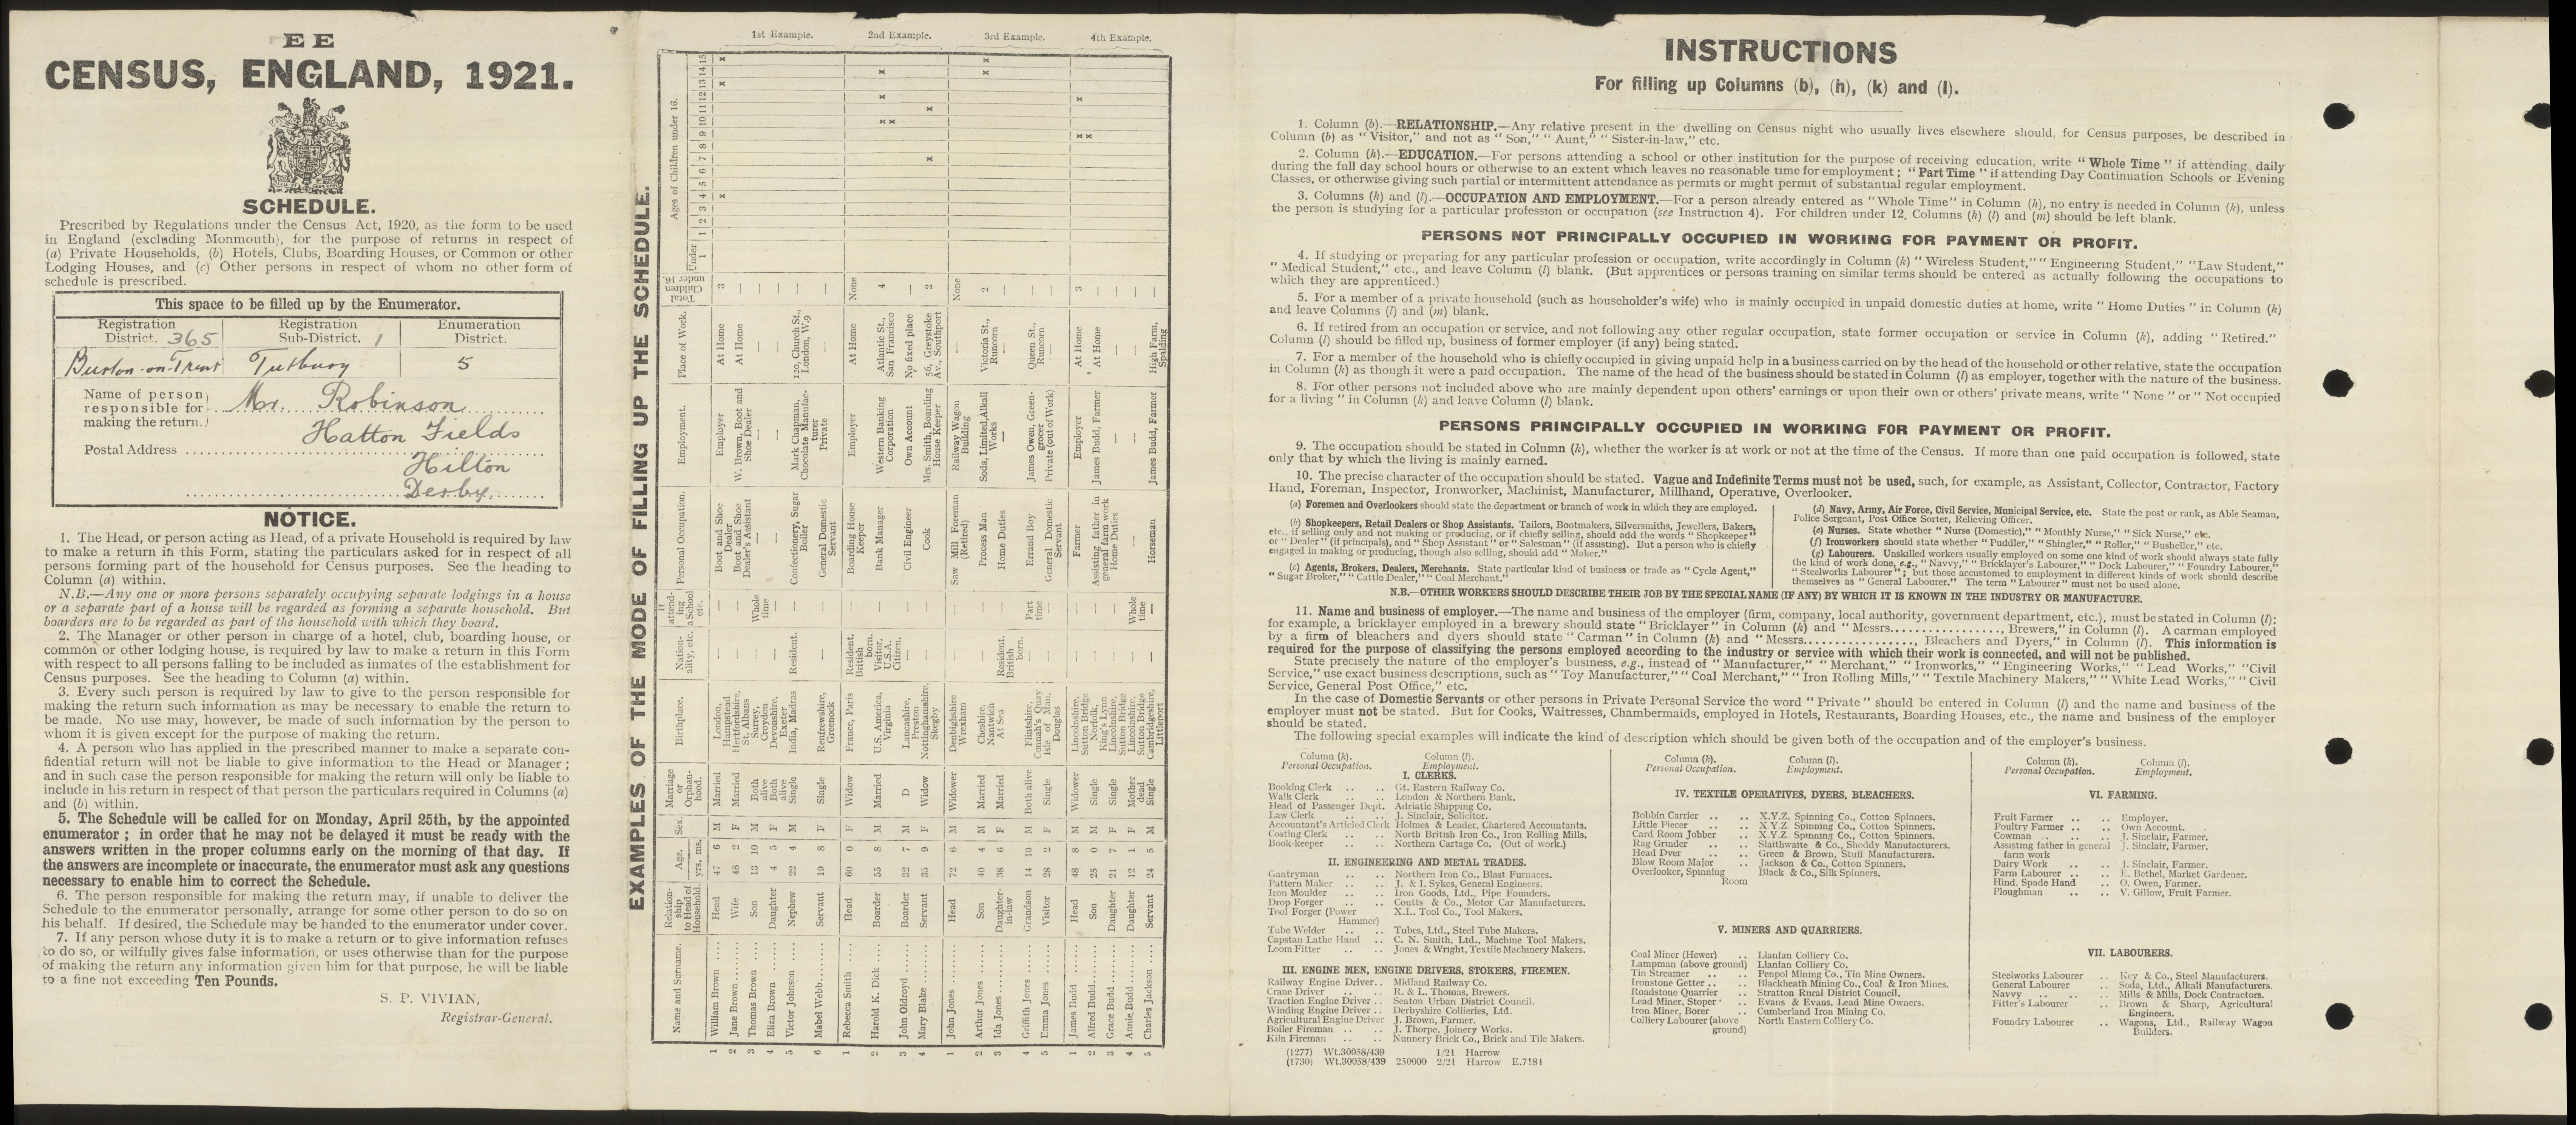 EE
CENSUS, ENGLAND, 1921.
SCHEDULE.
Prescribed by Regulations under the Census Act, 1920, as the form to be used
in England (excluding Monmouth), for the purpose of returns in respect of
(a) Private Households, (b) Hotels, Clubs, Boarding Houses, or Common or other
Lodging Houses, and (c) Other persons in respect of whom no other form of
schedule is prescribed.
This space to be filled up by the Enumerator.
Registration District. 365 Registration Sub-District. 1 Enumeration District.
Burton-on-Trent Tutbury 5
Name of person responsible for making the return. Mr. Robinson
Postal Address Hatton Fields
Hilton
Derby.
NOTICE.
1. The Head, or person acting as Head, of a private Household is required by law
to make a return in this Form, stating the particulars asked for in respect of all
persons forming part of the household for Census purposes. See the heading to
Column (a) within.
N.B.—Any one or more persons separately occupying separate lodgings in a house
or a separate part of a house will be regarded as forming a separate household. But
boarders are to be regarded as part of the household with which they board.
2. The Manager or other person in charge of a hotel, club, boarding house, or
common or other lodging house, is required by law to make a return in this Form
with respect to all persons falling to be included as inmates of the establishment for
Census purposes. See the heading to Column (a) within.
3. Every such person is required by law to give to the person responsible for
making the return such information as may be necessary to enable the return to
be made. No use may, however, be made of such information by the person to
whom it is given except for the purpose of making the return.
4. A person who has applied in the prescribed manner to make a separate con-
fidential return will not be liable to give information to the Head or Manager;
and in such case the person responsible for making the return will only be liable to
include in his return in respect of that person the particulars required in Columns (a)
and (b) within.
5. The Schedule will be called for on Monday, April 25th, by the appointed
enumerator; in order that he may not be delayed it must be ready with the
answers written in the proper columns early on the morning of that day. If
the answers are incomplete or inaccurate, the enumerator must ask any questions
necessary to enable him to correct the Schedule.
6. The person responsible for making the return may, if unable to deliver the
Schedule to the enumerator personally, arrange for some other person to do so on
his behalf. If desired, the Schedule may be handed to the enumerator under cover.
7. If any person whose duty it is to make a return or to give information refuses
to do so, or wilfully gives false information, or uses otherwise than for the purpose
of making the return any information given him for that purpose, he will be liable
to a fine not exceeding Ten Pounds.
S. P. VIVIAN,
Registrar-General.
EXAMPLES OF THE MODE OF FILLING UP THE SCHEDULE.
Name and Surname. Relationship to Head of Household. Age. yrs. ms. Sex. Marriage or Orphanhood. Birthplace. Nationality, etc. If attending a School etc. Personal Occupation. Employment. Place of Work. Total Children under 16. Ages of Children under 16.
Under 1 1 2 3 4 5 6 7 8 9 10 11 12 13 14 15
1st Example.
1 William Brown Head 47 6 M Married London, Hampstead — — Boot and Shoe Dealer Employer At Home 3 x x x
2 Jane Brown Wife 48 2 F Married Hertfordshire, St. Albans — — Boot and Shoe Dealer's Assistant W. Brown, Boot and Shoe Dealer At Home —
3 Thomas Brown Son 13 10 M Both alive Surrey, Croydon — Whole time — — — —
4 Eliza Brown Daughter 4 5 F Both alive Devonshire, Exeter — — — — — —
5 Victor Johnson Nephew 22 4 M Single India, Madras Resident. — Confectionery, Sugar Boiler Mark Chapman, Chocolate Manufacturer 120, Church St., London, W.9 —
6 Mabel Webb Servant 19 8 F Single Renfrewshire, Greenock — — General Domestic Servant Private — —
2nd Example.
1 Rebecca Smith Head 60 0 F Widow France, Paris Resident, British born. — Boarding House Keeper Employer At Home None
2 Harold K. Dick Boarder 55 8 M Married U.S. America, Virginia Visitor, U.S.A. Citizen. — Bank Manager Western Banking Corporation Atlantic St., San Francisco 4 x x x x
3 John Oldroyd Boarder 32 7 M D Lancashire, Preston — — Civil Engineer Own Account No fixed place —
4 Mary Blake Servant 35 9 F Widow Nottinghamshire, Skegby — — Cook Mrs. Smith, Boarding House Keeper 56, Greystoke Av., Southport 2 x x
3rd Example.
1 John Jones Head 72 6 M Widower Denbighshire Wrexham — — Saw Mill Foreman (Retired) Railway Wagon Building — None
2 Arthur Jones Son 40 4 M Married Cheshire, Nantwich — — Process Man Soda, Limited, Alkali Works Victoria St., Runcorn 2 x x
3 Ida Jones Daughter-in-law 38 6 F Married At Sea Resident British born. — Home Duties — — —
4 Griffith Jones Grandson 14 10 M Both alive Flintshire, Connah's Quay — Part time Errand Boy James Owen, Greengrocer Queen St., Runcorn —
5 Emma Jones Visitor 28 2 F Single Isle of Man, Douglas — — General Domestic Servant Private (out of Work) — —
4th Example.
1 James Budd Head 48 8 M Widower Lincolnshire, Sutton Bridge — — Farmer Employer At Home 3 x x x
2 Alfred Budd Son 25 0 M Single Norfolk, King's Lynn — — Assisting father in general farm work James Budd, Farmer At Home —
3 Grace Budd Daughter 21 7 F Single Lincolnshire, Sutton Bridge — — Home Duties — — —
4 Annie Budd Daughter 12 1 F Mother dead Lincolnshire, Sutton Bridge — Whole time — — — —
5 Charles Jackson Servant 24 5 M Single Cambridgeshire, Littleport — — Horseman James Budd, Farmer High Farm, Spalding —
INSTRUCTIONS
For filling up Columns (b), (h), (k) and (l).
1. Column (b).—RELATIONSHIP.—Any relative present in the dwelling on Census night who usually lives elsewhere should, for Census purposes, be described in
Column (b) as "Visitor," and not as "Son," "Aunt," "Sister-in-law," etc.
2. Column (h).—EDUCATION.—For persons attending a school or other institution for the purpose of receiving education, write "Whole Time" if attending daily
during the full day school hours or otherwise to an extent which leaves no reasonable time for employment; "Part Time" if attending Day Continuation Schools or Evening
Classes, or otherwise giving such partial or intermittent attendance as permits or might permit of substantial regular employment.
3. Columns (k) and (l).—OCCUPATION AND EMPLOYMENT.—For a person already entered as "Whole Time" in Column (h), no entry is needed in Column (k), unless
the person is studying for a particular profession or occupation (see Instruction 4). For children under 12, Columns (k) (l) and (m) should be left blank.
PERSONS NOT PRINCIPALLY OCCUPIED IN WORKING FOR PAYMENT OR PROFIT.
4. If studying or preparing for any particular profession or occupation, write accordingly in Column (k) "Wireless Student," "Engineering Student," "Law Student,"
"Medical Student," etc., and leave Column (l) blank. (But apprentices or persons training on similar terms should be entered as actually following the occupations to
which they are apprenticed.)
5. For a member of a private household (such as householder's wife) who is mainly occupied in unpaid domestic duties at home, write "Home Duties" in Column (k)
and leave Columns (l) and (m) blank.
6. If retired from an occupation or service, and not following any other regular occupation, state former occupation or service in Column (k), adding "Retired."
Column (l) should be filled up, business of former employer (if any) being stated.
7. For a member of the household who is chiefly occupied in giving unpaid help in a business carried on by the head of the household or other relative, state the occupation
in Column (k) as though it were a paid occupation. The name of the head of the business should be stated in Column (l) as employer, together with the nature of the business.
8. For other persons not included above who are mainly dependent upon others' earnings or upon their own or others' private means, write "None" or "Not occupied
for a living" in Column (k) and leave Column (l) blank.
PERSONS PRINCIPALLY OCCUPIED IN WORKING FOR PAYMENT OR PROFIT.
9. The occupation should be stated in Column (k), whether the worker is at work or not at the time of the Census. If more than one paid occupation is followed, state
only that by which the living is mainly earned.
10. The precise character of the occupation should be stated. Vague and Indefinite Terms must not be used, such, for example, as Assistant, Collector, Contractor, Factory
Hand, Foreman, Inspector, Ironworker, Machinist, Manufacturer, Millhand, Operative, Overlooker.
(a) Foremen and Overlookers should state the department or branch of work in which they are employed.
(b) Shopkeepers, Retail Dealers or Shop Assistants. Tailors, Bootmakers, Silversmiths, Jewellers, Bakers,
etc., if selling only and not making or producing, or if chiefly selling, should add the words "Shopkeeper"
or "Dealer" (if principals), and "Shop Assistant" or "Salesman" (if assisting). But a person who is chiefly
engaged in making or producing, though also selling, should add "Maker."
(c) Agents, Brokers, Dealers, Merchants. State particular kind of business or trade as "Cycle Agent,"
"Sugar Broker," "Cattle Dealer," "Coal Merchant."
(d) Navy, Army, Air Force, Civil Service, Municipal Service, etc. State the post or rank, as Able Seaman,
Police Sergeant, Post Office Sorter, Relieving Officer.
(e) Nurses. State whether "Nurse (Domestic)," "Monthly Nurse," "Sick Nurse," etc.
(f) Ironworkers should state whether "Puddler," "Shingler," "Roller," "Busheller," etc.
(g) Labourers. Unskilled workers usually employed on some one kind of work should always state fully
the kind of work done, e.g., "Navvy," "Bricklayer's Labourer," "Dock Labourer," "Foundry Labourer,"
"Steelworks Labourer"; but those accustomed to employment in different kinds of work should describe
themselves as "General Labourer." The term "Labourer" must not be used alone.
N.B.—OTHER WORKERS SHOULD DESCRIBE THEIR JOB BY THE SPECIAL NAME (IF ANY) BY WHICH IT IS KNOWN IN THE INDUSTRY OR MANUFACTURE.
11. Name and business of employer.—The name and business of the employer (firm, company, local authority, government department, etc.), must be stated in Column (l):
for example, a bricklayer employed in a brewery should state "Bricklayer" in Column (k) and "Messrs................, Brewers," in Column (l). A carman employed
by a firm of bleachers and dyers should state "Carman" in Column (k) and "Messrs................, Bleachers and Dyers," in Column (l). This information is
required for the purpose of classifying the persons employed according to the industry or service with which their work is connected, and will not be published.
State precisely the nature of the employer's business, e.g., instead of "Manufacturer," "Merchant," "Ironworks," "Engineering Works," "Lead Works," "Civil
Service," use exact business descriptions, such as "Toy Manufacturer," "Coal Merchant," "Iron Rolling Mills," "Textile Machinery Makers," "White Lead Works," "Civil
Service, General Post Office," etc.
In the case of Domestic Servants or other persons in Private Personal Service the word "Private" should be entered in Column (l) and the name and business of the
employer must not be stated. But for Cooks, Waitresses, Chambermaids, employed in Hotels, Restaurants, Boarding Houses, etc., the name and business of the employer
should be stated.
The following special examples will indicate the kind of description which should be given both of the occupation and of the employer's business.
Column (k). Personal Occupation. Column (l). Employment.
I. CLERKS.
Booking Clerk .. .. Gt. Eastern Railway Co.
Walk Clerk .. .. London & Northern Bank.
Head of Passenger Dept. Adriatic Shipping Co.
Law Clerk .. .. J. Sinclair, Solicitor.
Accountant's Articled Clerk Holmes & Leader, Chartered Accountants.
Costing Clerk .. .. North British Iron Co., Iron Rolling Mills.
Book-keeper .. .. Northern Cartage Co. (Out of work.)
II. ENGINEERING AND METAL TRADES.
Gantryman .. .. Northern Iron Co., Blast Furnaces.
Pattern Maker .. .. J. & I. Sykes, General Engineers.
Iron Moulder .. .. Iron Goods, Ltd., Pipe Founders.
Drop Forger .. .. Coutts & Co., Motor Car Manufacturers.
Tool Forger (Power Hammer) X.L. Tool Co., Tool Makers.
Tube Welder .. .. Tubes, Ltd., Steel Tube Makers.
Capstan Lathe Hand .. C. N. Smith, Ltd., Machine Tool Makers.
Loom Fitter .. .. Jones & Wright, Textile Machinery Makers.
III. ENGINE MEN, ENGINE DRIVERS, STOKERS, FIREMEN.
Railway Engine Driver .. Midland Railway Co.
Crane Driver .. .. R. & L. Thomas, Brewers.
Traction Engine Driver .. Seaton Urban District Council.
Winding Engine Driver .. Derbyshire Collieries, Ltd.
Agricultural Engine Driver J. Brown, Farmer.
Boiler Fireman .. .. J. Thorpe, Joinery Works.
Kiln Fireman .. .. Nunnery Brick Co., Brick and Tile Makers.
(1277) Wt.30058/439 1/21 Harrow
(1730) Wt.30058/439 250000 2/21 Harrow E.7184
Column (k). Personal Occupation. Column (l). Employment.
IV. TEXTILE OPERATIVES, DYERS, BLEACHERS.
Bobbin Carrier .. .. X.Y.Z. Spinning Co., Cotton Spinners.
Little Piecer .. .. X.Y.Z. Spinning Co., Cotton Spinners.
Card Room Jobber .. X.Y.Z. Spinning Co., Cotton Spinners.
Rag Grinder .. .. Slaithwaite & Co., Shoddy Manufacturers.
Head Dyer .. .. Green & Brown, Stuff Manufacturers.
Blow Room Major .. Jackson & Co., Cotton Spinners.
Overlooker, Spinning Room Black & Co., Silk Spinners.
V. MINERS AND QUARRIERS.
Coal Miner (Hewer) .. Llanfan Colliery Co.
Lampman (above ground) Llanfan Colliery Co.
Tin Streamer .. .. Penpol Mining Co., Tin Mine Owners.
Ironstone Getter .. .. Blackheath Mining Co., Coal & Iron Mines.
Roadstone Quarrier .. Stratton Rural District Council.
Lead Miner, Stoper .. Evans & Evans, Lead Mine Owners.
Iron Miner, Borer .. Cumberland Iron Mining Co.
Colliery Labourer (above ground) North Eastern Colliery Co.
Column (k). Personal Occupation. Column (l). Employment.
VI. FARMING.
Fruit Farmer .. .. Employer.
Poultry Farmer .. .. Own Account.
Cowman .. .. J. Sinclair, Farmer.
Assisting father in general farm work J. Sinclair, Farmer.
Dairy Work .. .. J. Sinclair, Farmer.
Farm Labourer .. .. E. Bethel, Market Gardener.
Hind, Spade Hand .. O. Owen, Farmer.
Ploughman .. .. V. Gillow, Fruit Farmer.
VII. LABOURERS.
Steelworks Labourer .. Key & Co., Steel Manufacturers.
General Labourer .. Soda, Ltd., Alkali Manufacturers.
Navvy .. .. Mills & Mills, Dock Contractors.
Fitter's Labourer .. Brown & Sharp, Agricultural Engineers.
Foundry Labourer .. Wagons, Ltd., Railway Wagon Builders.